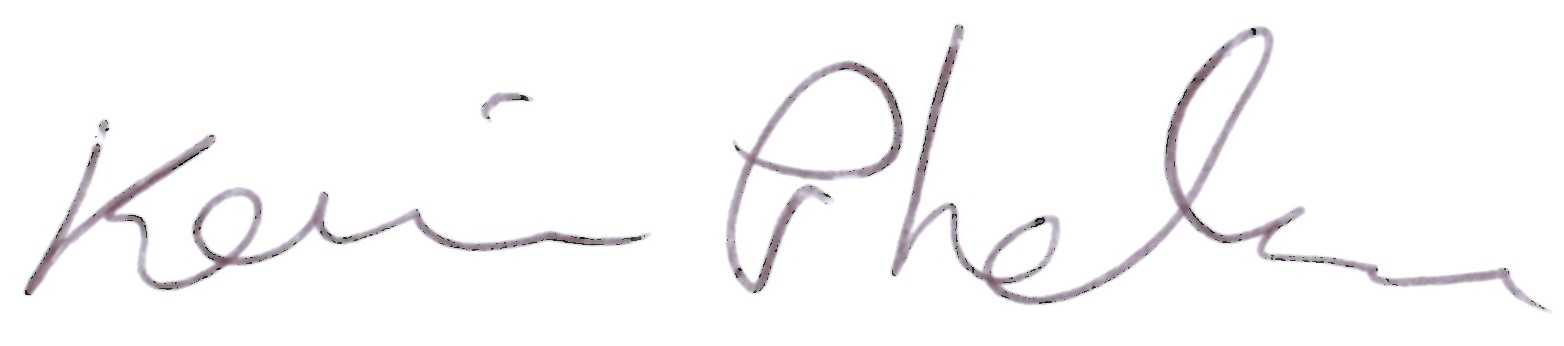 Kevin Phelan